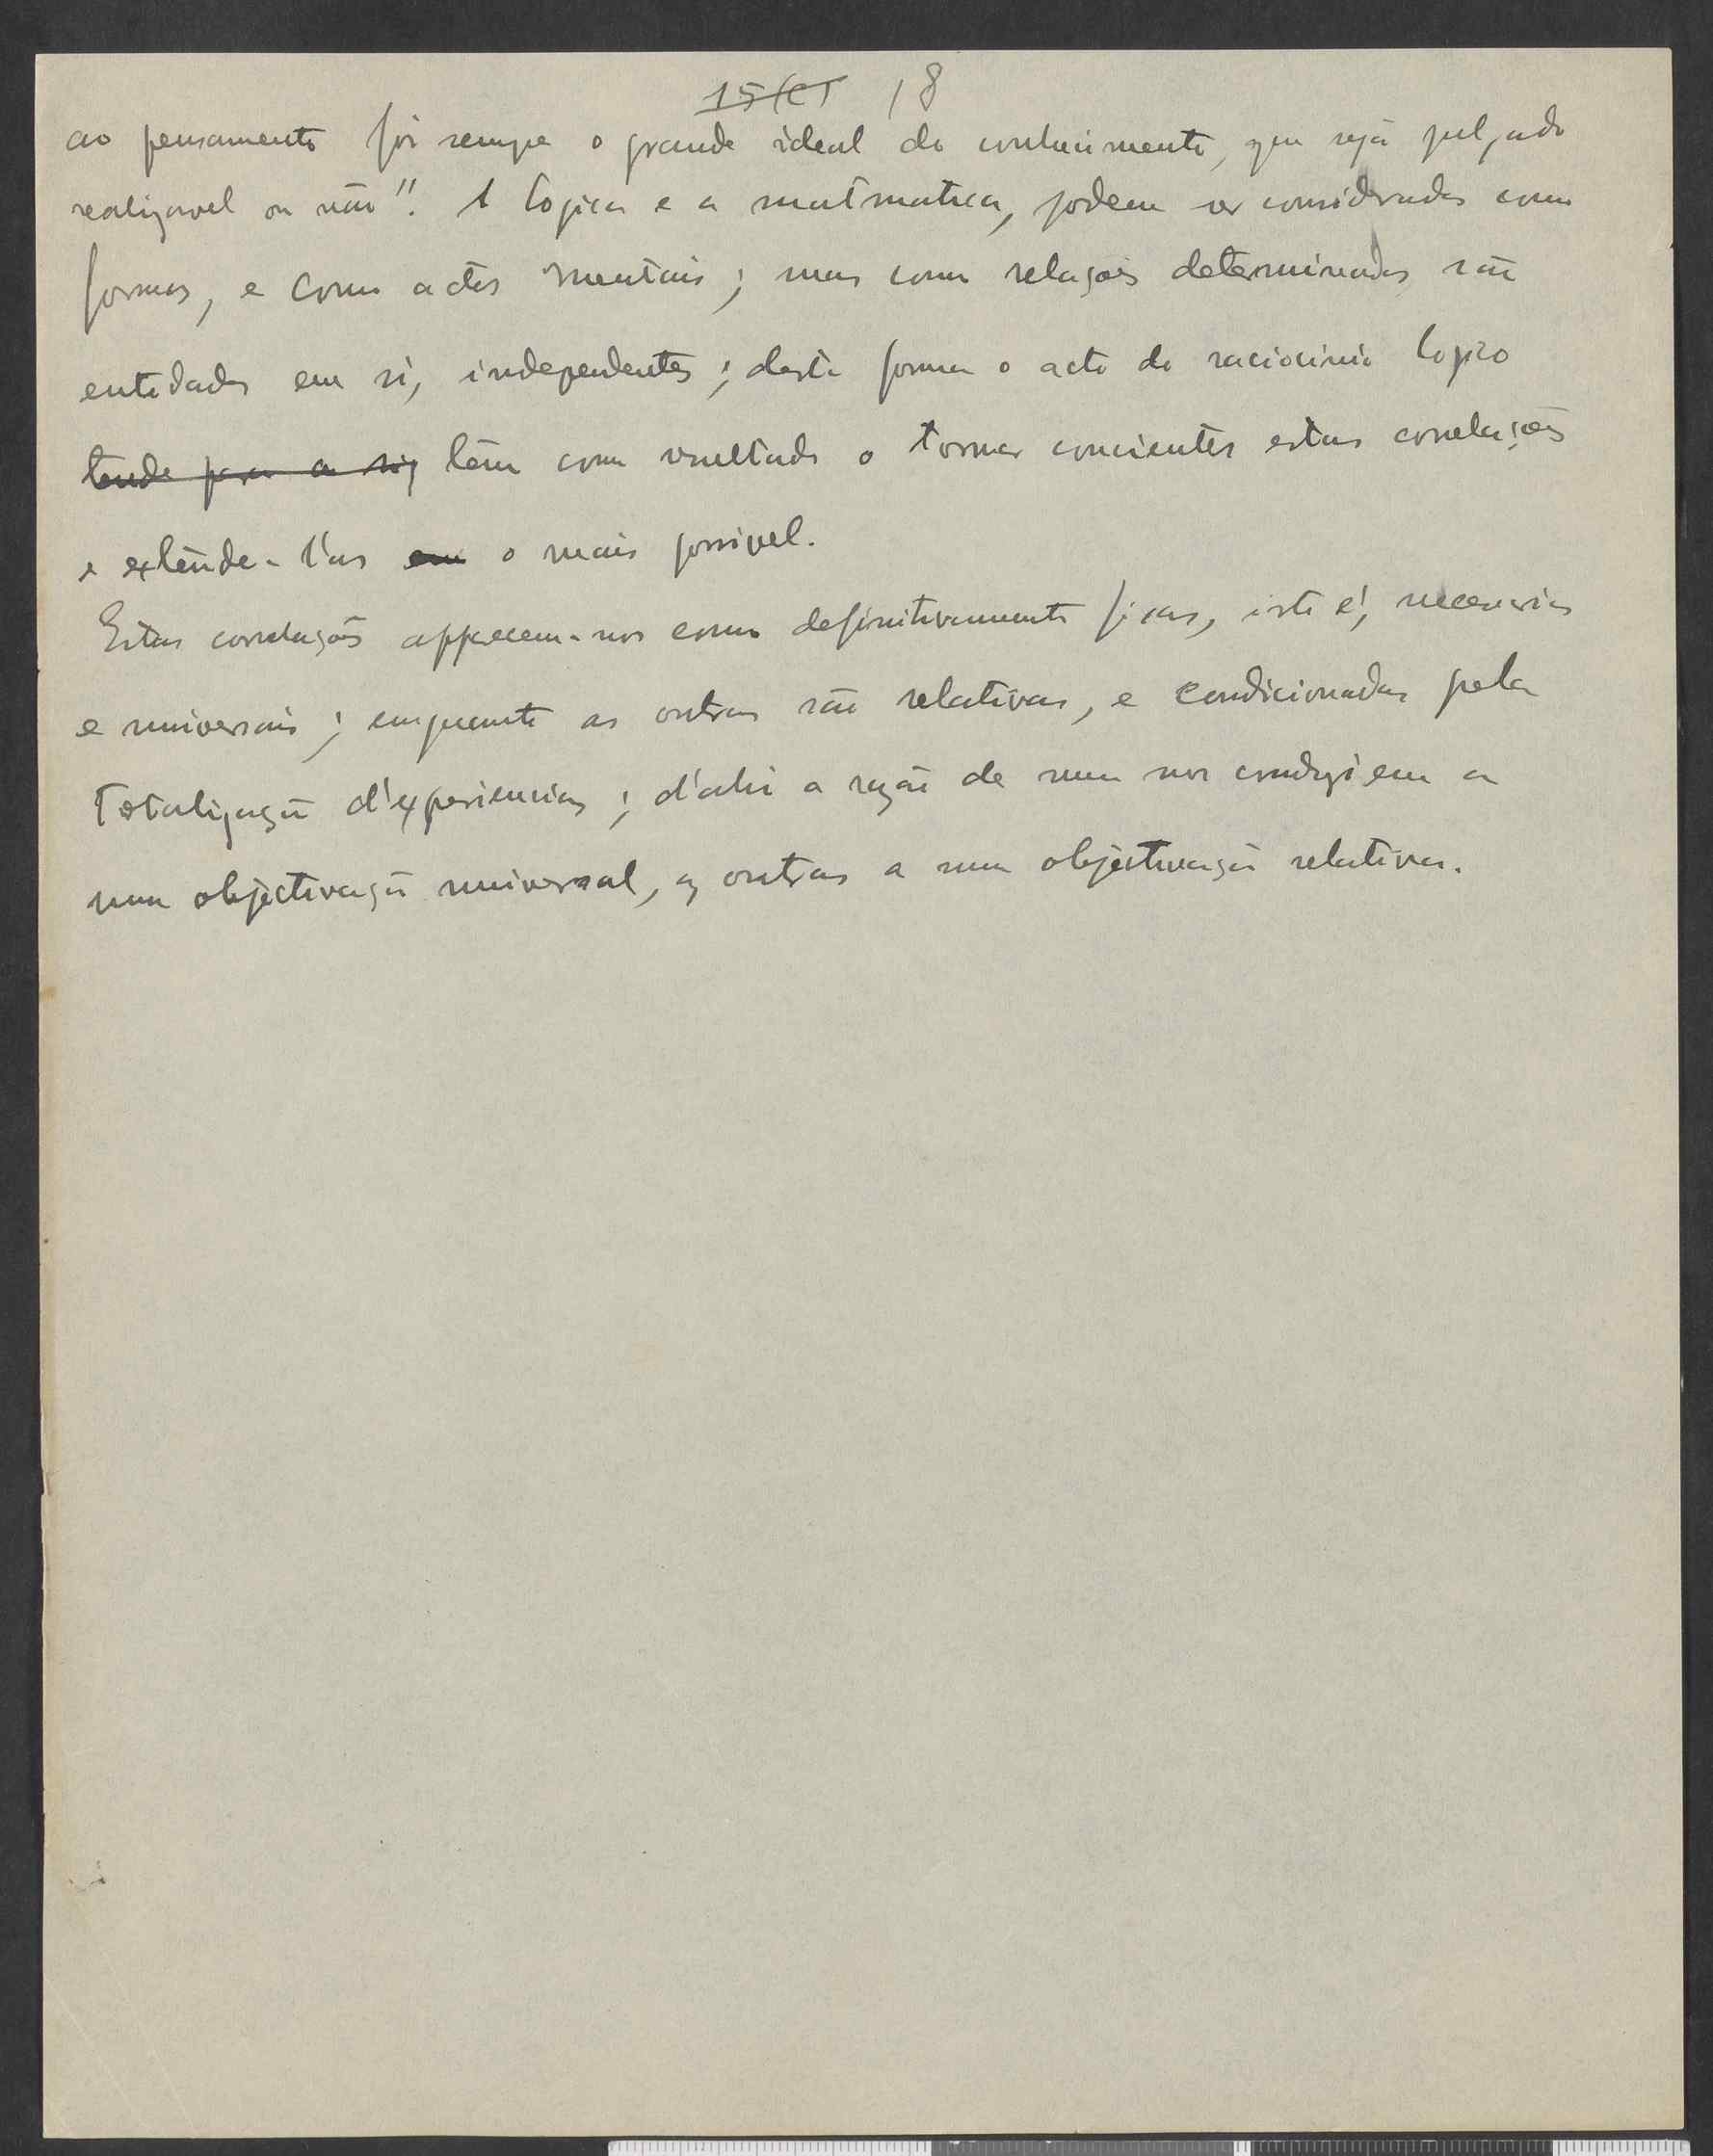 18
ao pensamento foi sempre o grande ideal do conhecimento, quer seja julgado
realizavel ou não". A logica e a matmatica, podem ser consideradas como
formas, e como actos mentais; mas como relações determinadas são
entidades em si, independentes; desta forma o acto do raciocinio logico
tende para a sig têm como resultado o tornar concientes estas correlações
e extende-l'as em o mais possivel.
Estas correlações apparecem-nos como definitivamente fixas, isto é, necessarias
e universais; emquanto as outras são relativas, e condicionadas pela
totalização d'experiencias; d'ahi a razão de umas nos conduzirem a
uma objectivação universal, as outras a uma objectivação relativa.